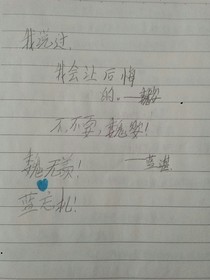 我说过
我会让后悔
的。
不不要,魏婴!
——蓝湛
魏无羡!
蓝忘机!